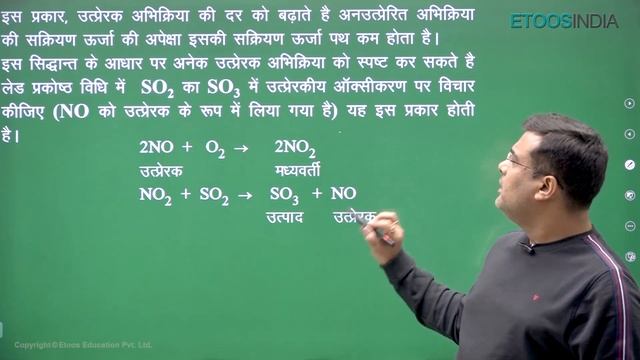 ETOOSINDIA
इस प्रकार, उत्प्रेरक अभिक्रिया की दर को बढ़ाते है अनउत्प्रेरित अभिक्रिया
की सक्रियण ऊर्जा की अपेक्षा इसकी सक्रियण ऊर्जा पथ कम होता है।
इस सिद्धान्त के आधार पर अनेक उत्प्रेरक अभिक्रिया को स्पष्ट कर सकते है
लेड प्रकोष्ठ विधि में SO₂ का SO₃ में उत्प्रेरकीय ऑक्सीकरण पर विचार
कीजिए (NO को उत्प्रेरक के रूप में लिया गया है) यह इस प्रकार होती
है।
2NO + O₂ → 2NO₂
उत्प्रेरक मध्यवर्ती
NO₂ + SO₂ → SO₃ + NO
उत्पाद उत्प्रेरक
Copyright © Etoos Education Pvt. Ltd.